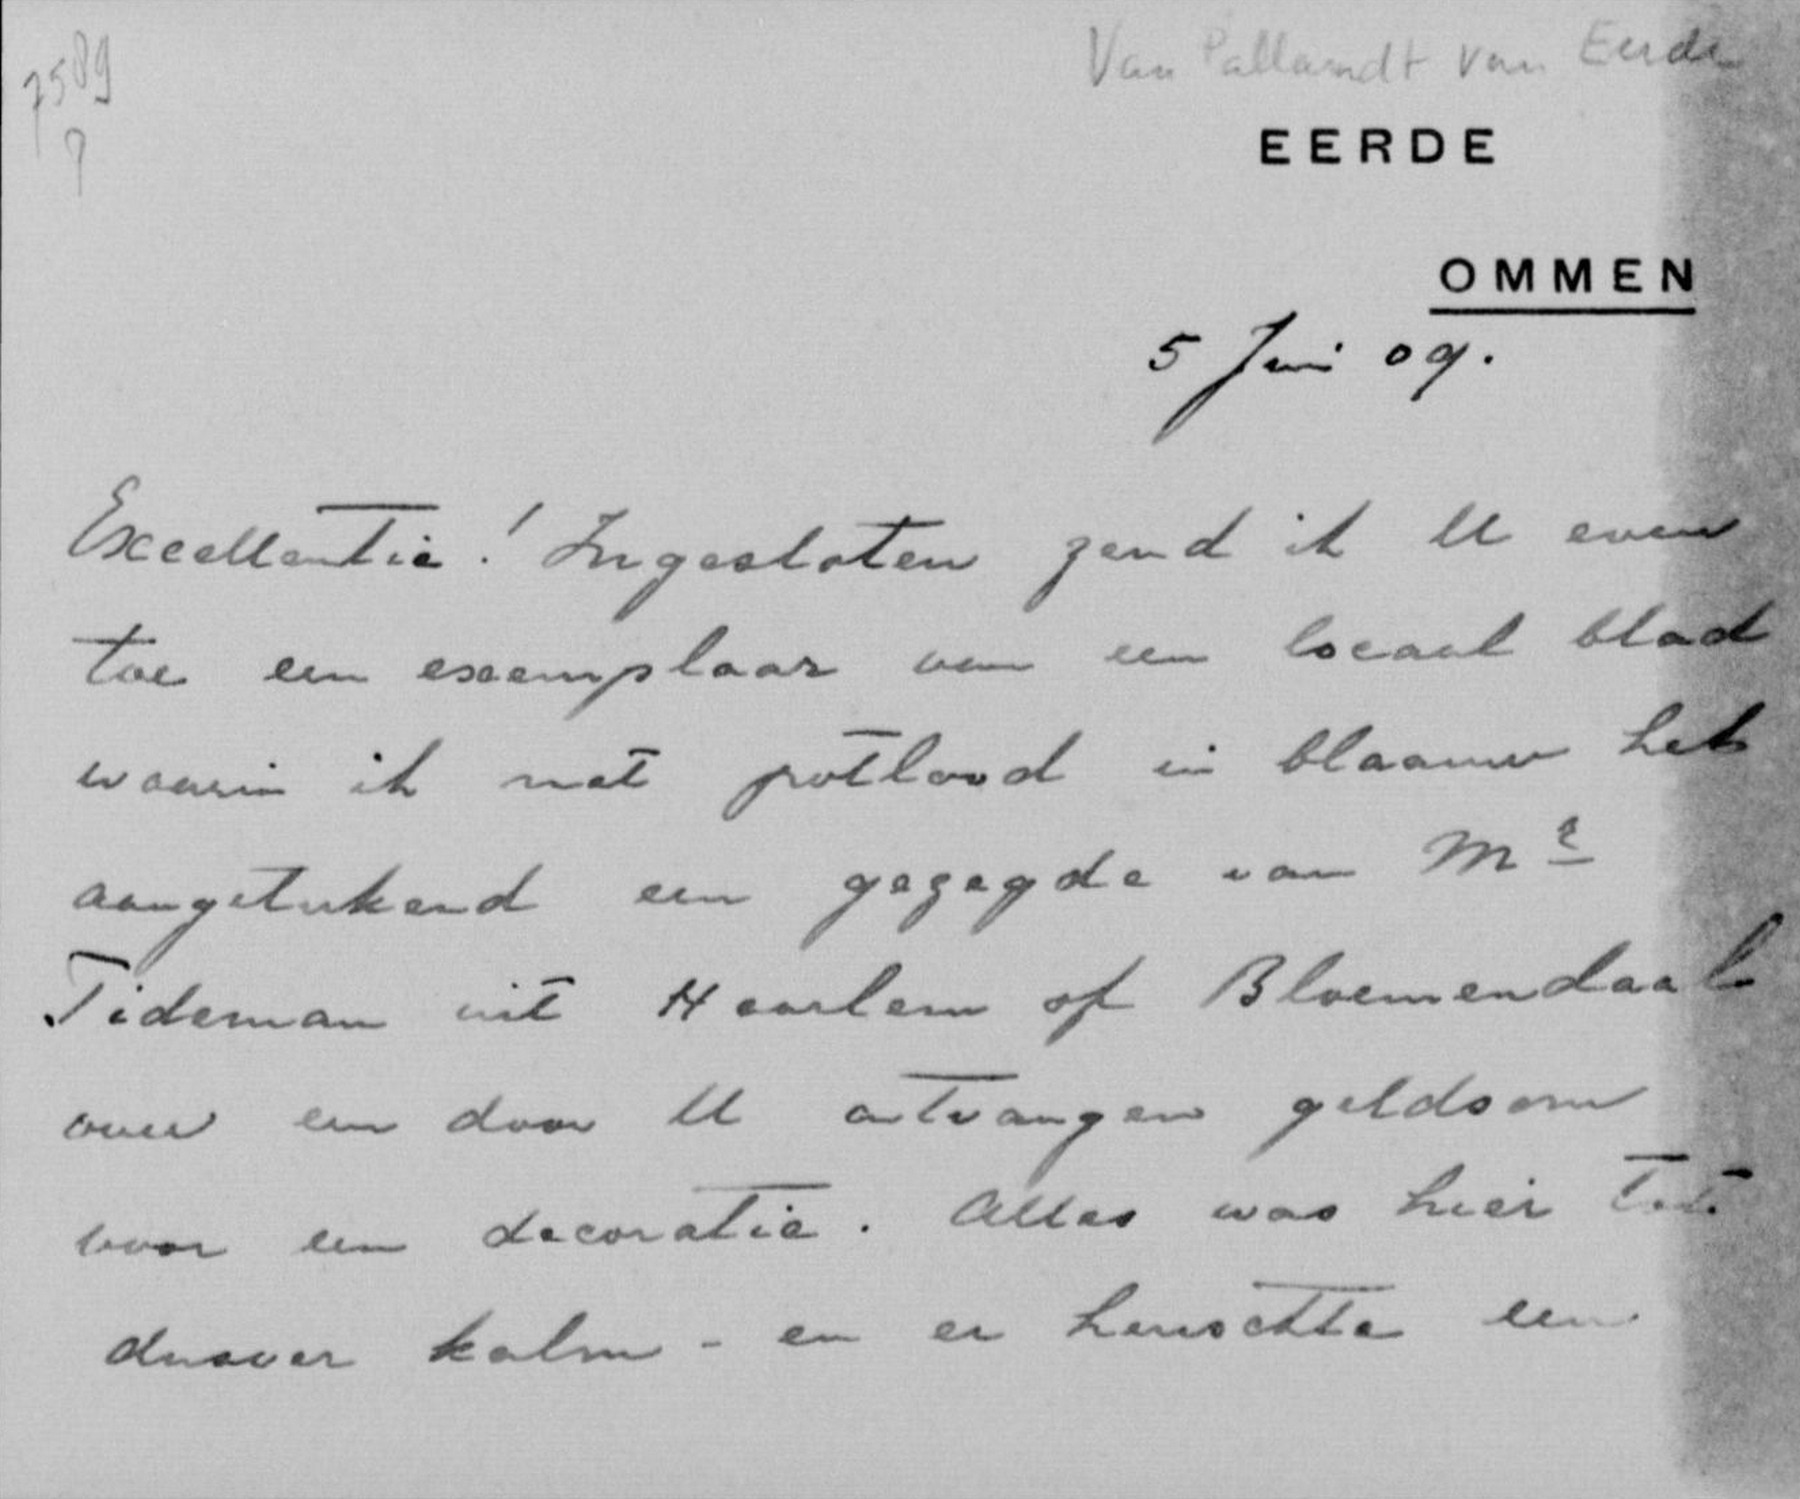 7589
Van Pallandt van Eerde
EERDE
OMMEN
5 Juni 09.
Excellentie! Ingesloten zend ik U even
toe een exemplaar van een locaal blad
waarin ik met potlood in blaauw heb
aangetekend een gezegde van Mr
Tideman uit Haarlem of Bloemendaal
over een door U ontvangen geldsom
voor een decoratie. Alles was hier tot
dusver kalm - en er heerschtte een